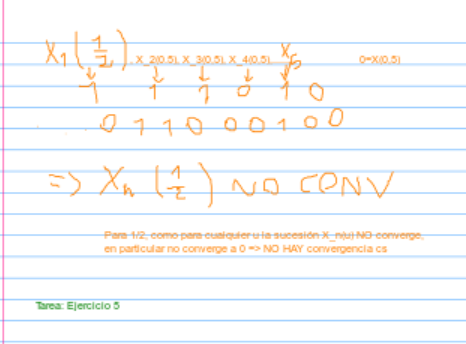 X₁(1/2), X_2(0.5), X_3(0.5), X_4(0.5), X₅ 0=X(0.5)
1 1 1 0 1 0
0 1 1 0 0 0 1 0 0
=> Xₙ(1/2) NO CONV
Para 1/2, como para cualquier u la sucesión X_n(u) NO converge,
en particular no converge a 0 => NO HAY convergencia cs
Tarea: Ejercicio 5